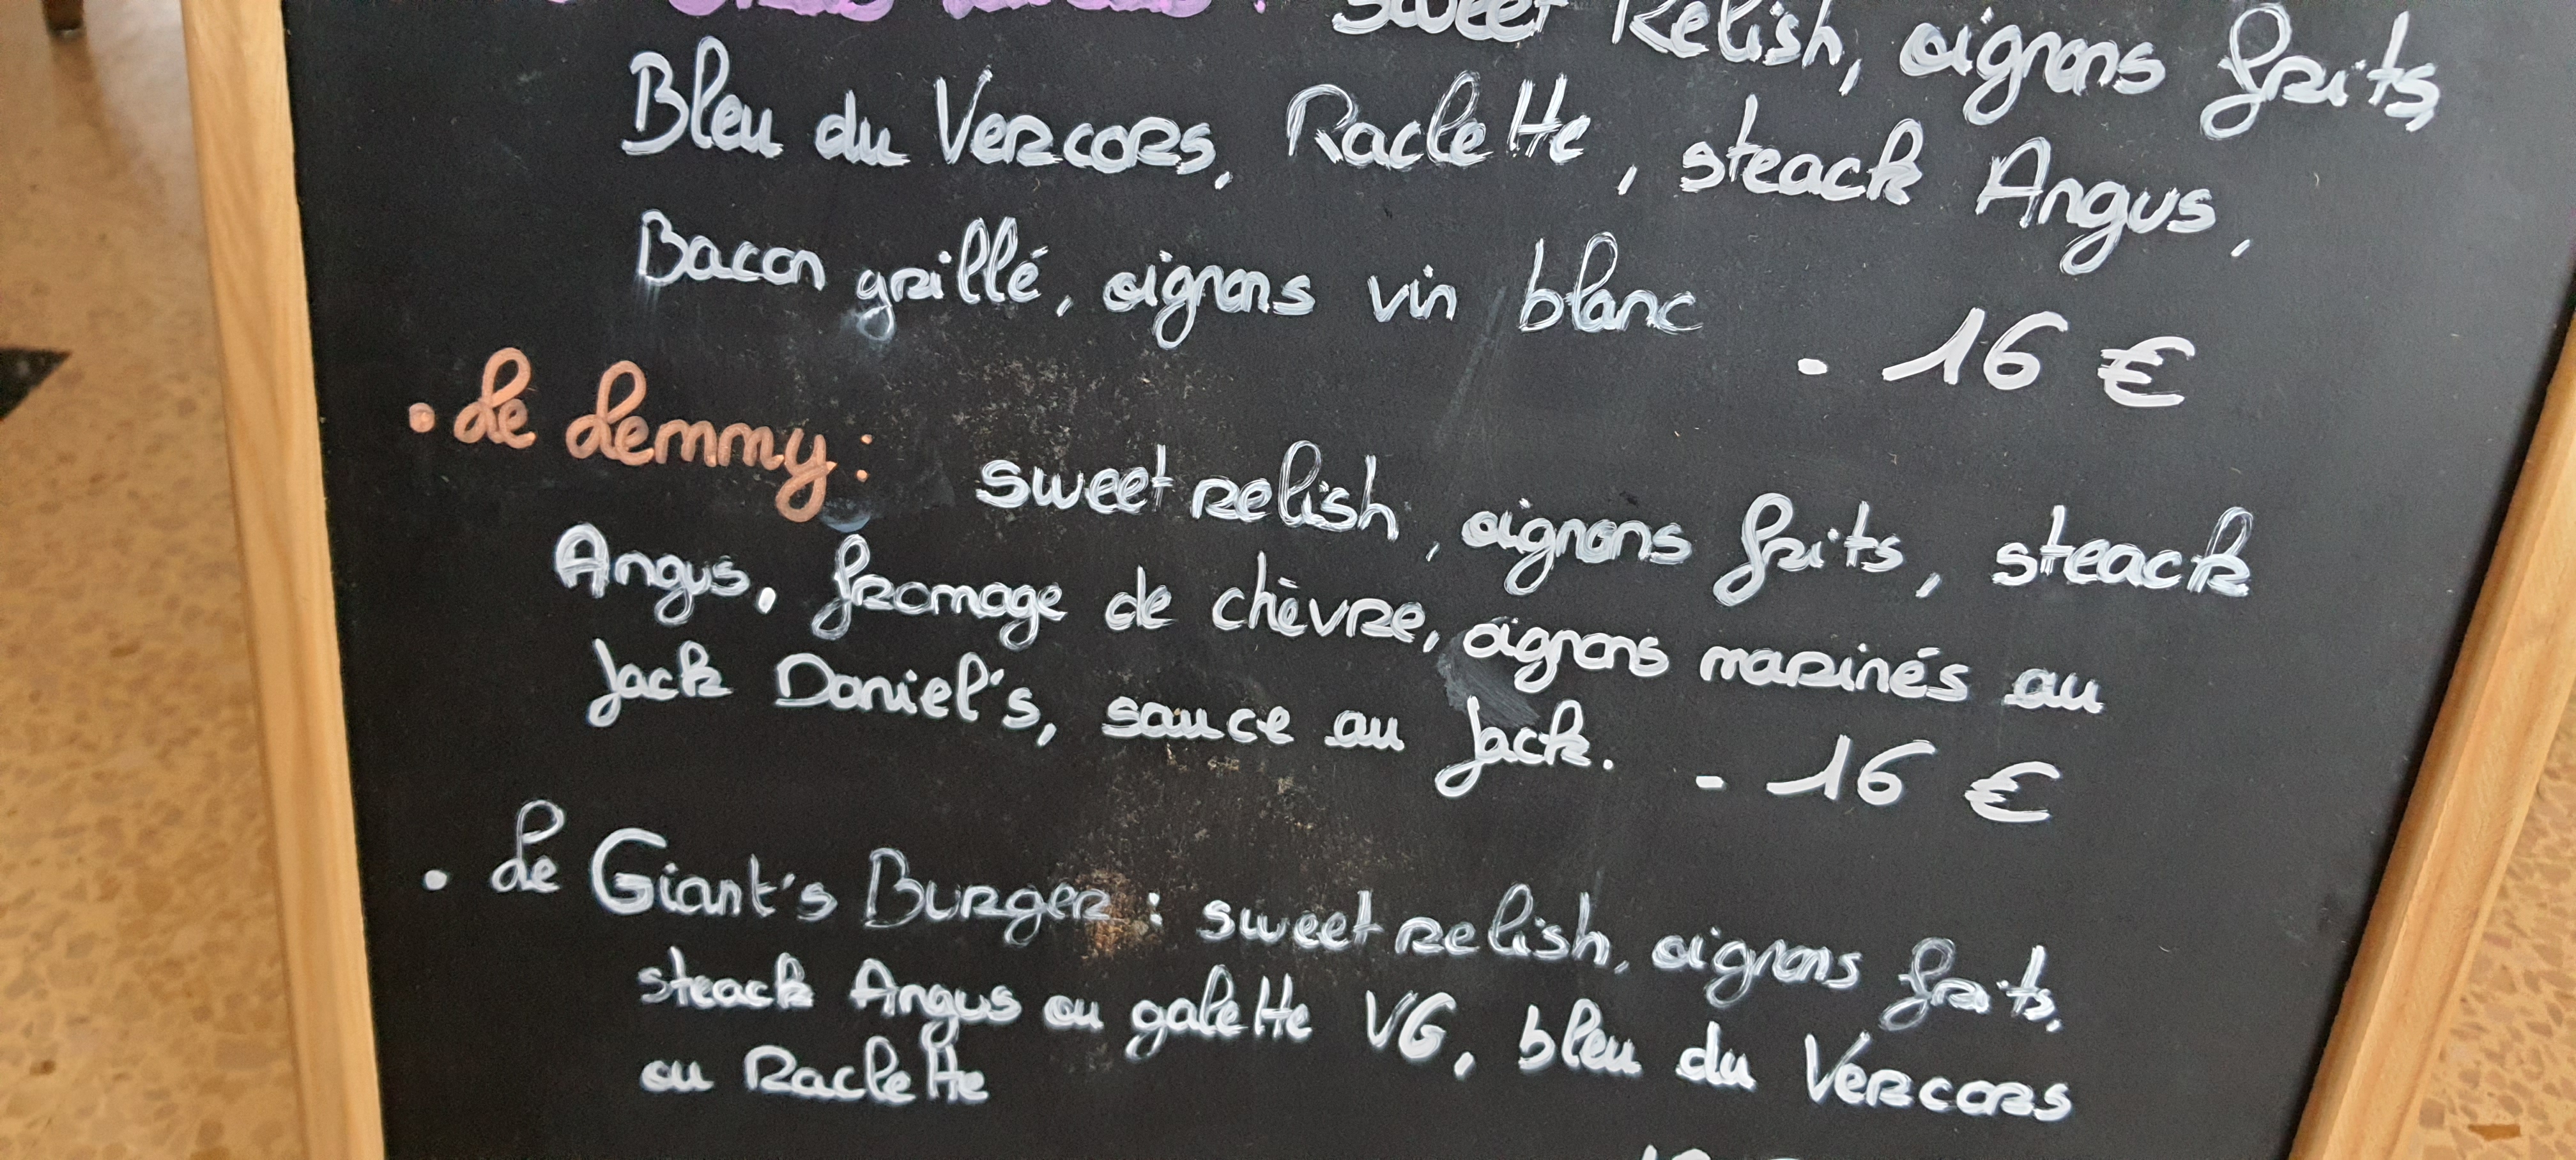 Sweet Relish, oignons frits,
Bleu du Vercors, Raclette, steack Angus,
Bacon grillé, oignons vin blanc - 16 €
• Le Lemmy: sweet relish, oignons frits, steack
Angus, fromage de chèvre, oignons marinés au
Jack Daniel's, sauce au Jack. - 16 €
• Le Giant's Burger : sweet relish, oignons frits,
steack Angus ou galette VG, bleu du Vercors
ou Raclette